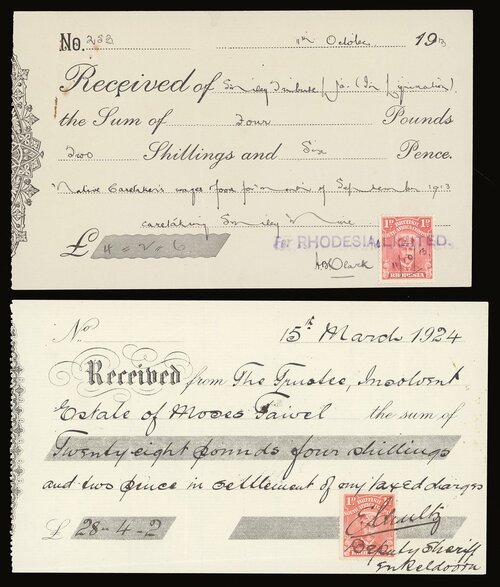 No. 233 11th October 1913
Received of Smiley Tribute
the Sum of Four Pounds
Two Shillings and Six Pence.
Native Caretaker's wages &c for month of September 1913
caretaking Smiley Mine
£ 4=2=6 For RHODESIA LIMITED.
A B Clark
1D. BRITISH SOUTH AFRICA COMPANY 1D.
RHODESIA
No 15th March 1924
Received from The Trustee, Insolvent
Estate of Moses Faivel the sum of
Twenty eight pounds four shillings
and two pence in settlement of my taxed charges
£ 28-4-2 E Schultz
Deputy Sheriff
Enkeldoorn
1D. BRITISH